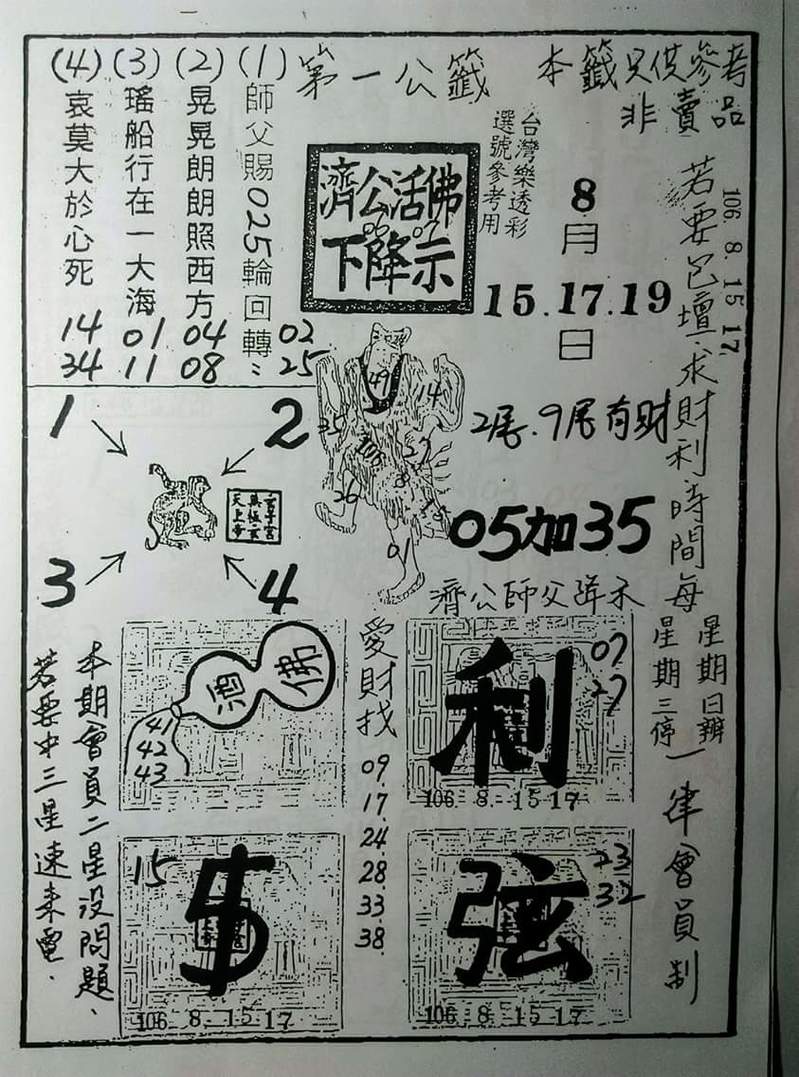 本籤只供參考
非賣品
第一公籤
台灣樂透彩
選號參考用
濟公活佛
下降示
06 07
8月
15.17.19
日
106 8. 15 17
若要包壇.求財利時間每
星期日辦
星期三停
一律會員制
(1)師父賜025輪回轉:
02
25
(2)晃晃朗朗照西方
04
08
(3)瑤船行在一大海
01
11
(4)哀莫大於心死
14
34
1
2
3
4
49
14
35
103
27
8
26
01
2尾.9尾有財
05加35
濟公師父降示
佛
酒
41
42
43
愛財找
09
17
24
28
33
38
利
07
27
106 8. 15 17
15
$
106 8. 15 17
弦
23
32
106 8. 15 17
本期會員二星没問題、
若要中三星速来電.